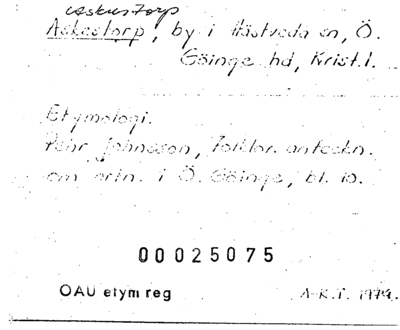 Askustorp
Askestorp, by i Hästveda sn, Ö.
Göinge hd, Krist. l.
Etymologi.
Pehr Johnsson, Folklor. anteckn.
om ortn. i Ö. Göinge, bl. 10.
00025075
OAU etym reg
A-K.T. 1979.